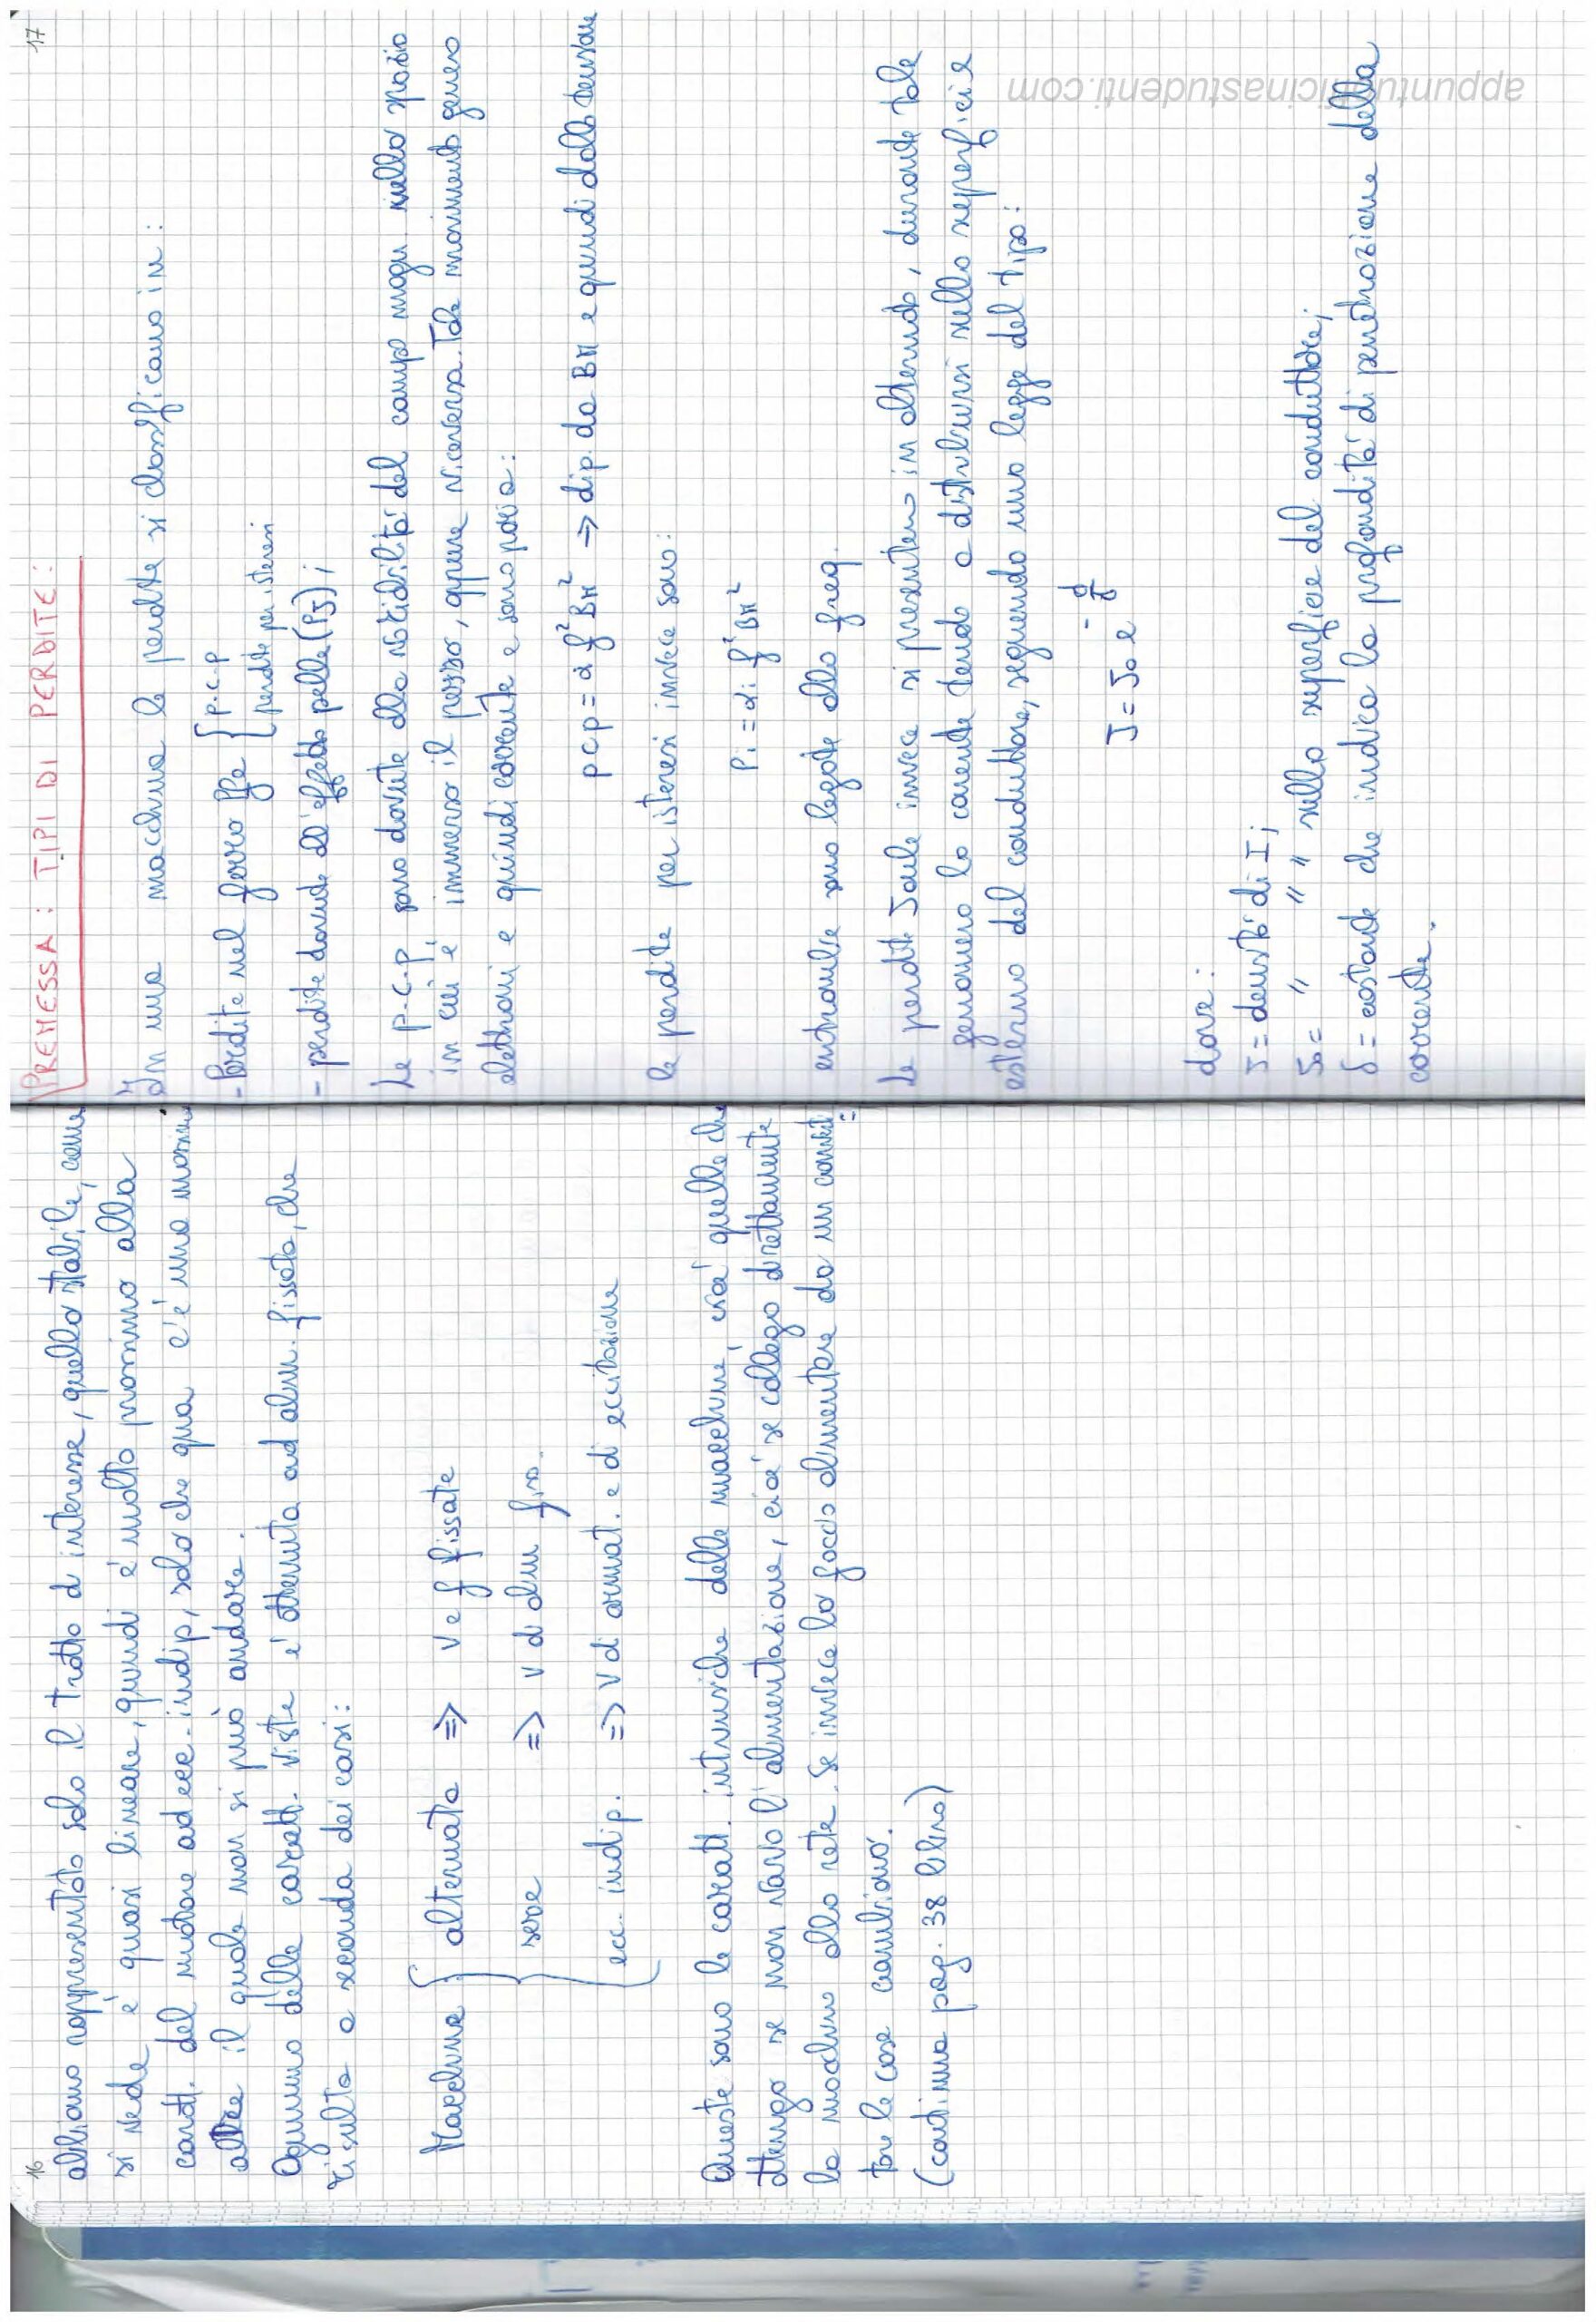 16
abbiamo rappresentato solo il tratto d'interesse, quello stabile, come
si vede è quasi lineare, quindi è molto prossimo alla
caratt. del motore ad ecc. indip, solo che qua c'è una
oltre il quale non si può andare.
Ognuno delle caratt. viste è ottenuta ad alim. fissata, che
risulta a seconda dei casi:
Macchina { alternata => V e f fissate
serie => V di alim fiss.
ecc. indip. => V di armat. e di eccitazione
Queste sono le caratt. intrinsiche delle macchine, cioè quelle che
ottengo se non vario l'alimentazione, cioè se collego direttamente
la macchina alla rete. Se invece la faccio alimentare da un convert
tore le cose cambiano.
(continua pag. 38 libro)
17
PREMESSA: TIPI DI PERDITE:
In una macchina le perdite si classificano in:
- Perdite nel ferro Pfe { p.c.p
perdite per isteresi
- perdite dovute all'effetto pelle (PJ);
Le p.c.p. sono dovute alla variabilità del campo magn. nello spazio
in cui è immerso il pezzo, oppure viceversa. Tale movimento genera
elettroni e quindi corrente e sono pari a:
pcp = α f² BM² => dip. da BM e quindi dalla tensione
le perdite per isteresi invece sono:
Pi = αi f² BM²
entrambe sono legate alla freq.
Le perdite Joule invece si presentano in alternata, durante tale
fenomeno la corrente tende a distribuirsi nella superficie
esterna del conduttore, seguendo una legge del tipo:
J = J₀ e^(-d/δ)
dove:
J = densità di I;
J₀ = " " " nella superficie del conduttore;
δ = costante che indica la profondità di penetrazione della
corrente.
appuntiofficinastudenti.com